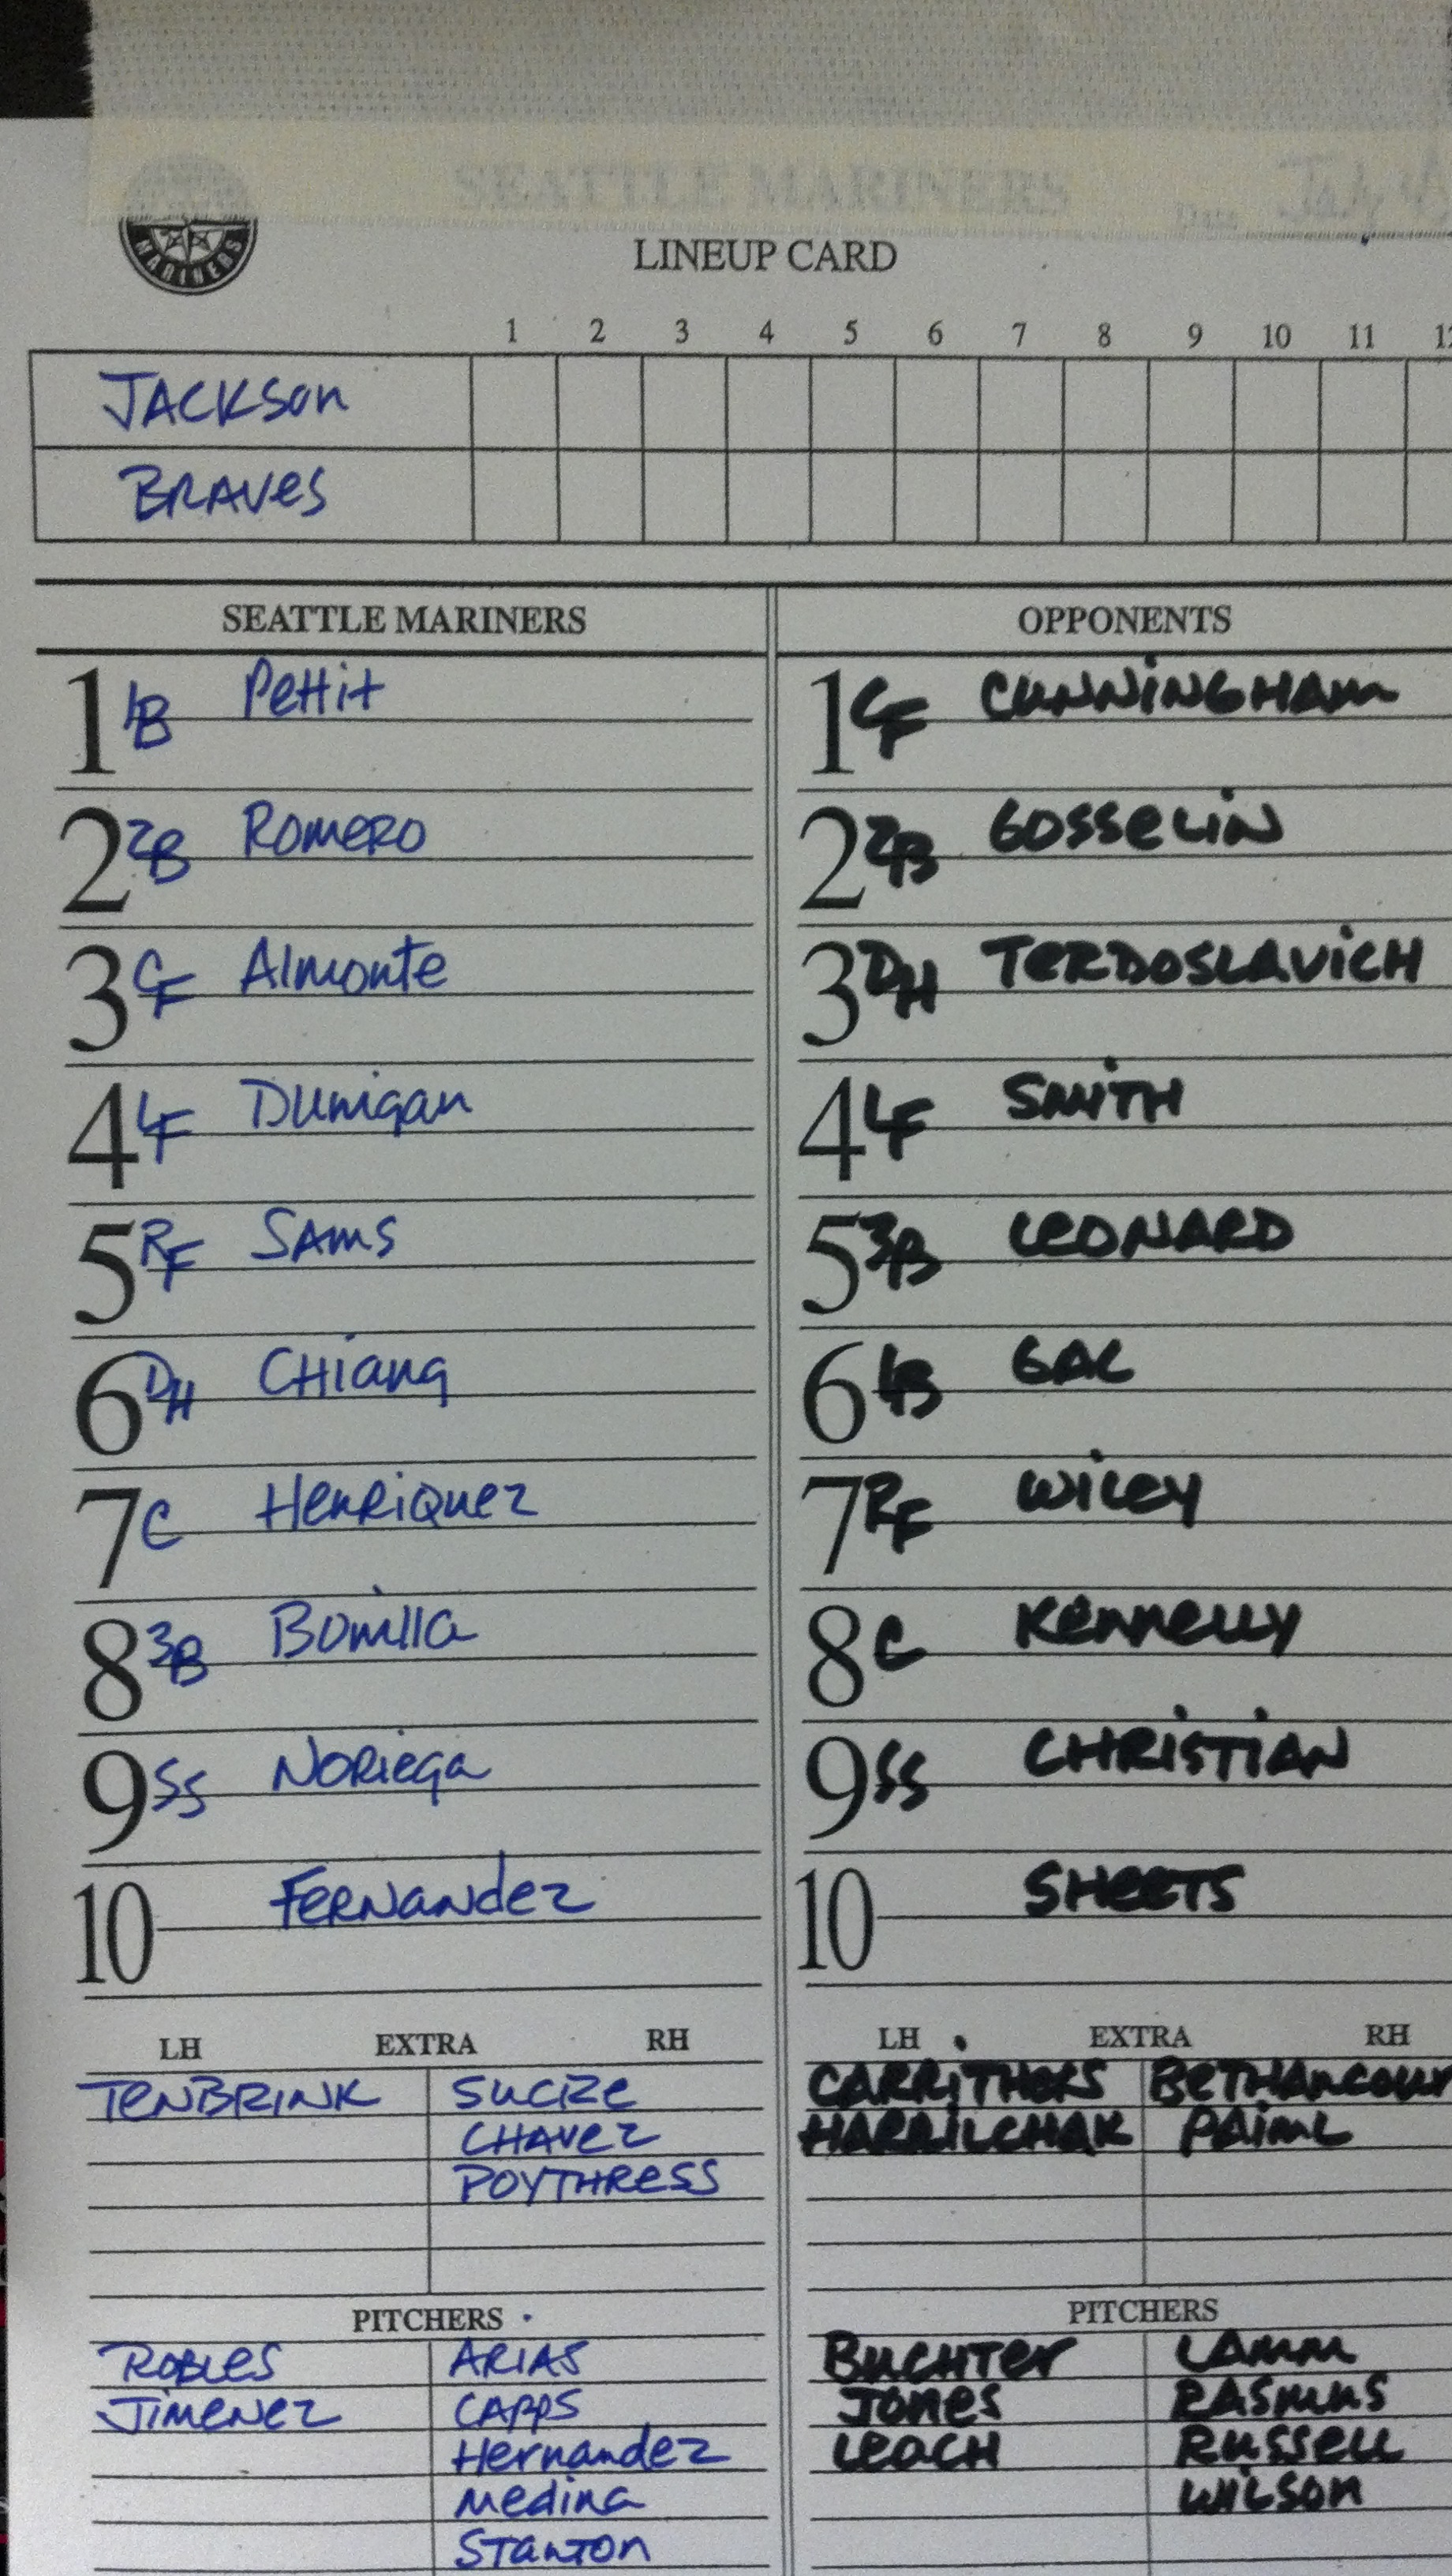 SEATTLE MARINERS
Date July
MARINERS
LINEUP CARD
1 2 3 4 5 6 7 8 9 10 11
JACKSON
BRAVES
SEATTLE MARINERS
1 1B Pettit
2 2B ROMERO
3 CF Almonte
4 LF Dunigan
5 RF SAMS
6 DH CHiang
7 C HenRiquez
8 3B Bonilla
9 SS NORiega
10 FERNandez
LH EXTRA RH
TenBRINK SUCRE
CHAVEZ
POYTHRESS
PITCHERS
ROBLES ARIAS
JIMENEZ CAPPS
Hernandez
Medina
STANTON
OPPONENTS
1 CF CUNNINGHAM
2 2B GOSSELIN
3 DH TERDOSLAVICH
4 LF SMITH
5 3B LEONARD
6 1B GAC
7 RF WILEY
8 C KENNELLY
9 SS CHRISTIAN
10 SHEETS
LH EXTRA RH
CARRITHERS BETHANCOUR
HARRILCHAK
PITCHERS
BUCHTER LAMM
JONES RASMUS
LEACH RUSSELL
WILSON